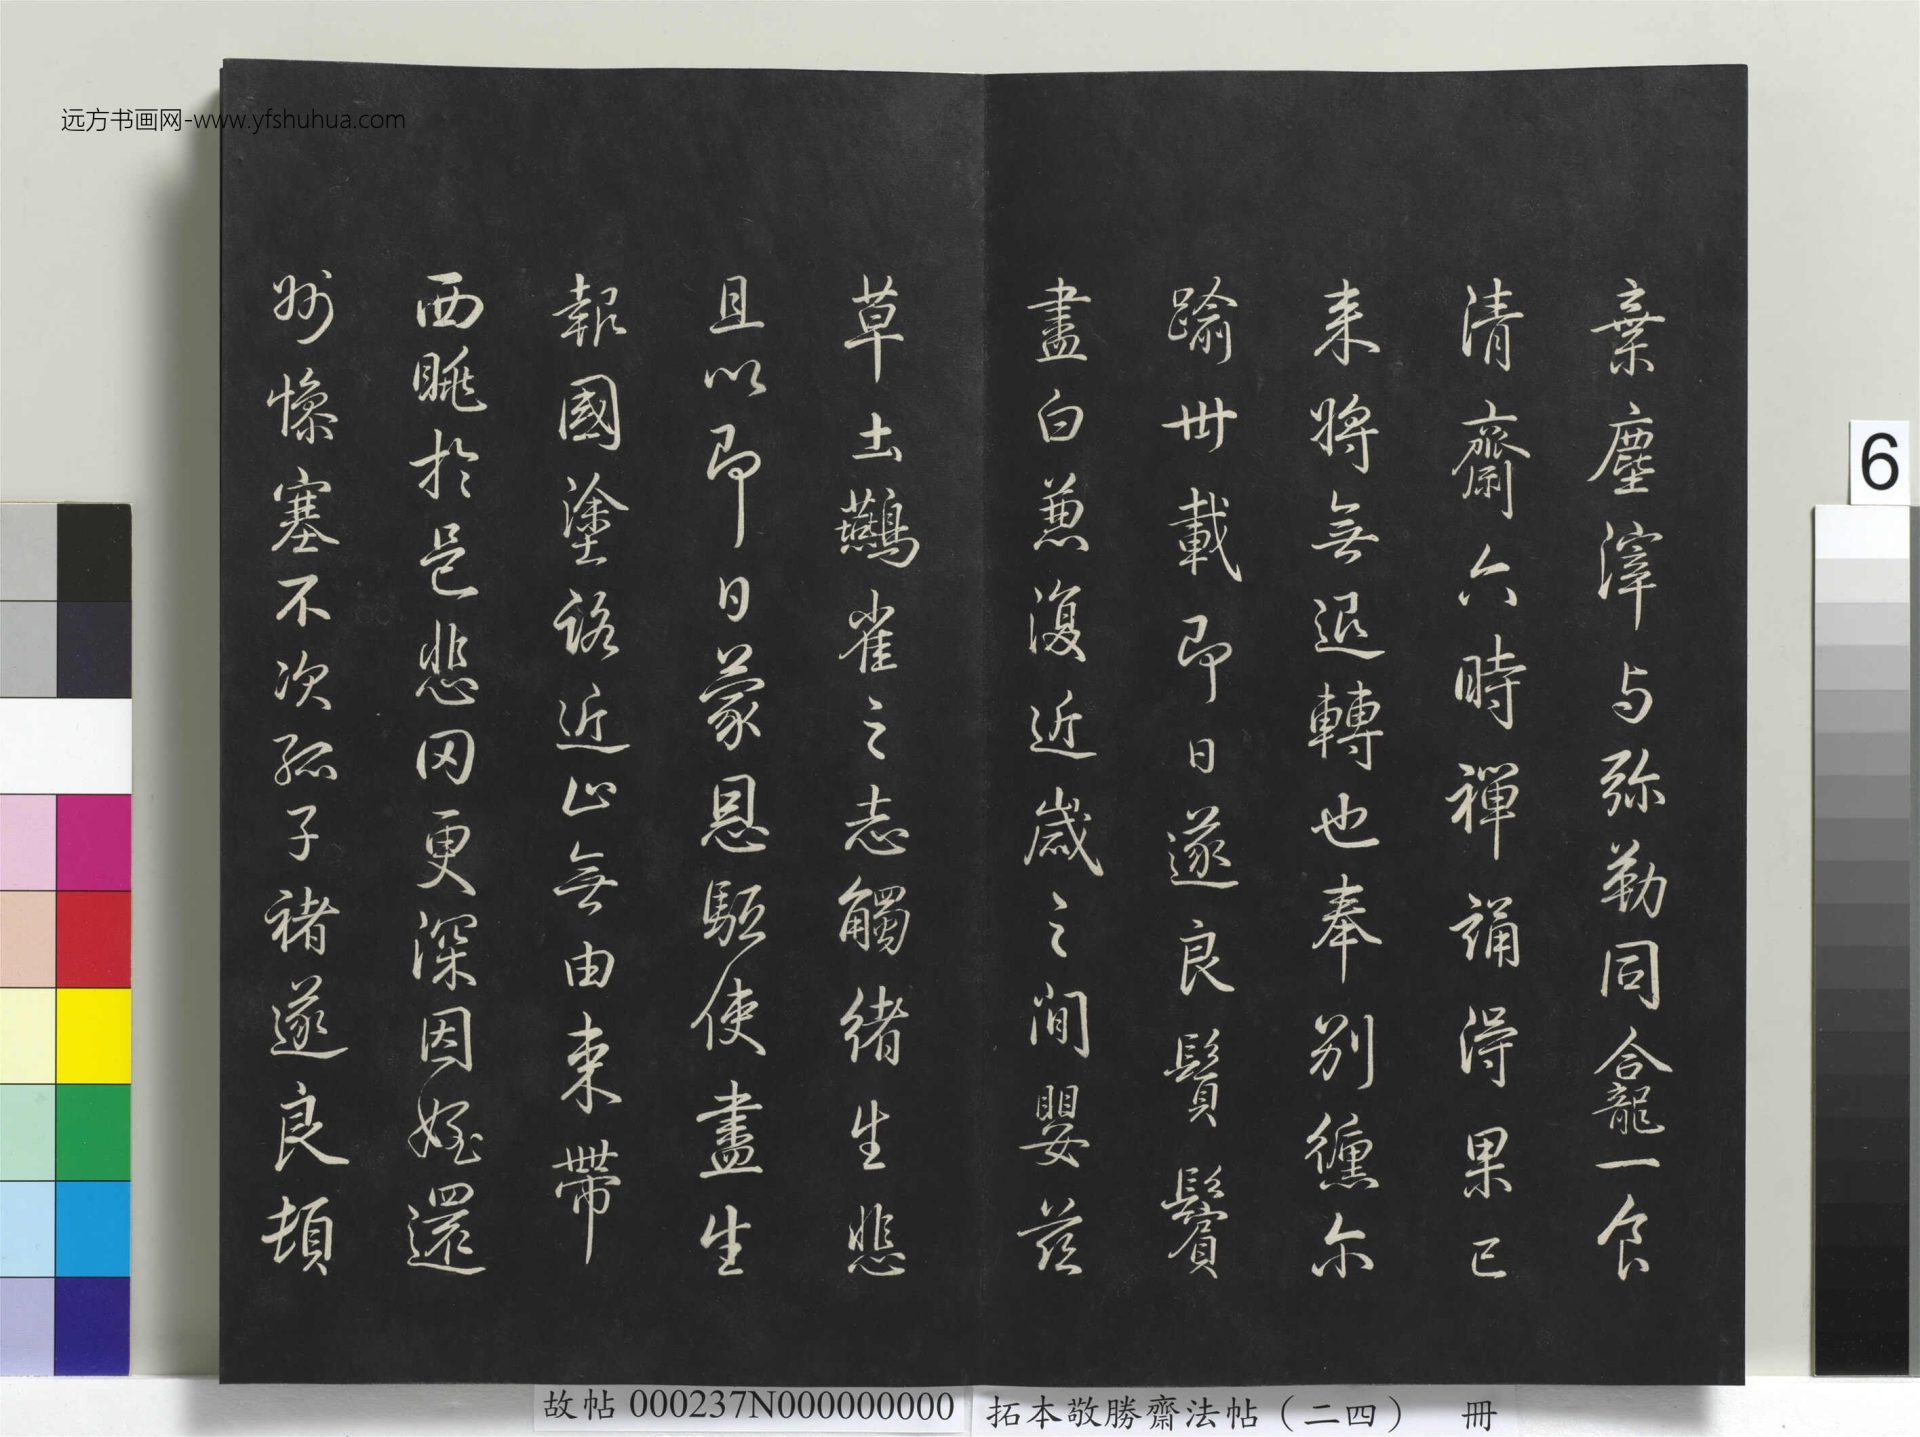 远方书画网-www.yfshuhua.com
棄塵滓与弥勒同龕一食
清齋六時禪誦得果已
来將無退轉也奉别儵尓
踰丗載即日遂良鬚鬢
盡白兼復近歲之間嬰茲
草土鷰雀之志觸緒生悲
且以即日蒙恩驅使盡生
報國塗路近止無由束帶
西眺於邑悲罔更深因姪還
州慘塞不次孤子褚遂良頓
6
故帖 000237N000000000
拓本敬勝齋法帖（二四） 冊